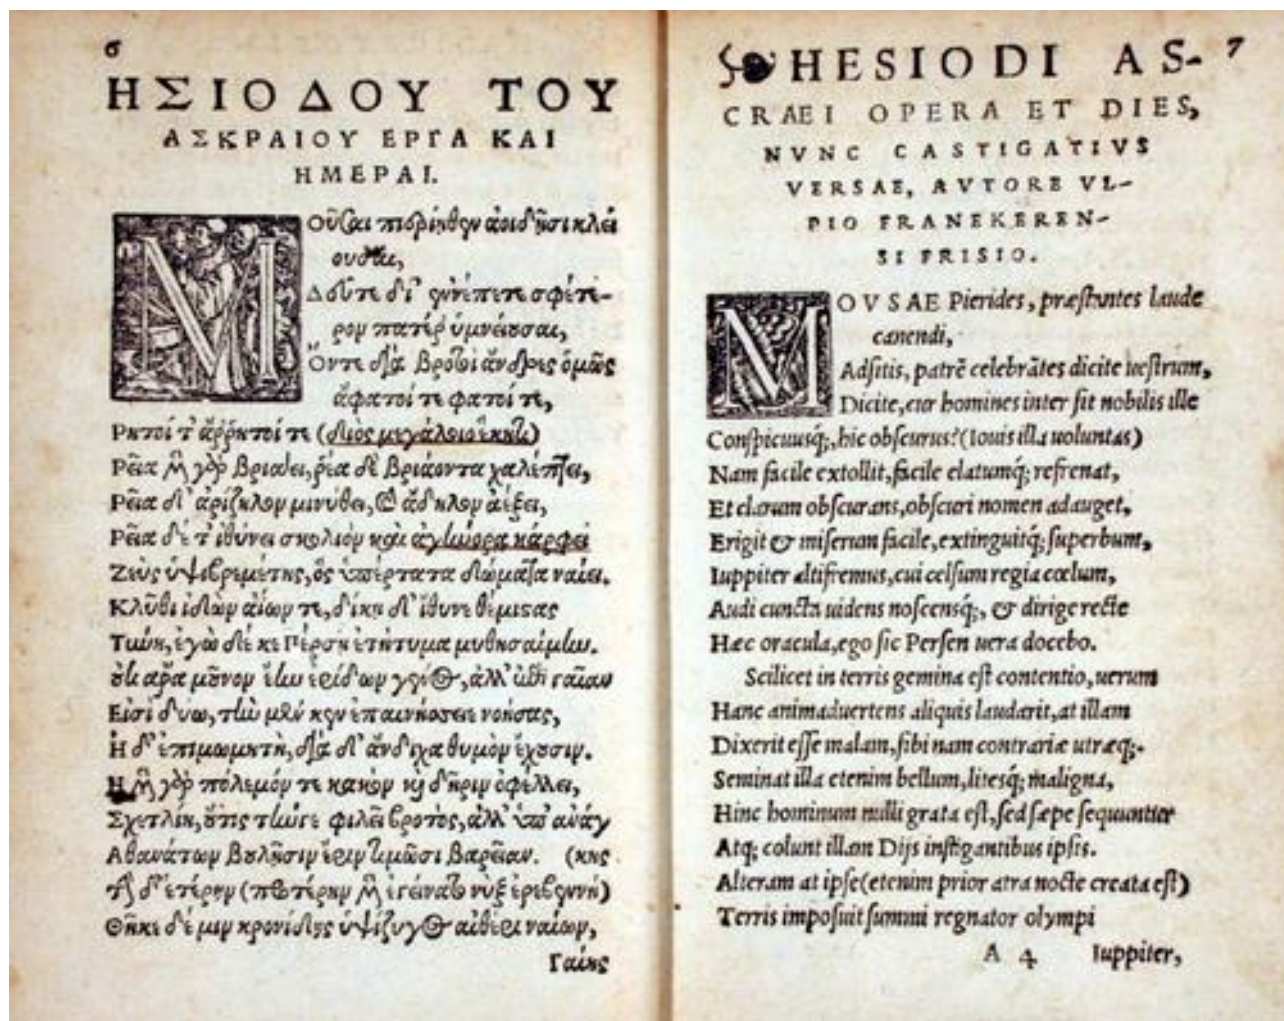 6
ΗΣΙΟΔΟΥ ΤΟΥ
ΑΣΚΡΑΙΟΥ ΕΡΓΑ ΚΑΙ
ΗΜΕΡΑΙ.
ΜΟῦσαι πιερίηθεν ἀοιδῆσι κλεί
ουσαι,
Δεῦτε δί' ἐννέπετε σφέτε-
ρον πατέρ' ὑμνείουσαι,
Ὅντε διὰ βροτοὶ ἄνδρες ὁμῶς
ἄφατοί τε φατοί τε,
Ρητοί τ' ἄρρητοί τε (διὸς μεγάλοιο ἕκητι)
Ρεῖα μὲν γὰρ βριάει, ῥέα δὲ βριάοντα χαλέπτει,
Ρεῖα δ' ἀρίζηλον μινύθει, καὶ ἄδηλον ἀέξει,
Ρεῖα δέ τ' ἰθύνει σκολιὸν καὶ ἀγήνορα κάρφει
Ζεὺς ὑψιβρεμέτης, ὃς ὑπέρτατα δώματα ναίει.
Κλῦθι ἰδὼν ἀΐων τε, δίκη δ' ἴθυνε θέμιστας
Τύνη, ἐγὼ δέ κε Πέρση ἐτήτυμα μυθησαίμην.
οὐκ ἄρα μοῦνον ἔην ἐρίδων γένος, ἀλλ' ἐπὶ γαῖαν
Εἰσὶ δύω, τὴν μέν κεν ἐπαινήσειε νοήσας,
Ἡ δ' ἐπιμωμητὴ, διὰ δ' ἄνδιχα θυμὸν ἔχουσιν.
Ἡ μὲν γὰρ πόλεμόν τε κακὸν καὶ δῆριν ὀφέλλει,
Σχετλίη, οὔτις τήνγε φιλεῖ βροτὸς, ἀλλ' ὑπ' ἀνάγ
Αθανάτων βουλῇσιν ἔριν τιμῶσι βαρεῖαν. (κης
τὴν δ' ἑτέρην (προτέρην μὲν ἐγείνατο νυξ ἐρεβεννή)
Θῆκε δέ μιν κρονίδης ὑψίζυγος αἰθέρι ναίων,
Γαίης
HESIODI AS- 7
CRAEI OPERA ET DIES,
NVNC CASTIGATIVS
VERSAE, AVTORE VL-
PIO FRANEKEREN-
SI FRISIO.
MOVSAE Pierides, præstantes laude
canendi,
Adsitis, patrē celebrātes dicite uestrum,
Dicite, cur homines inter sit nobilis ille
Conspicuusq;, hic obscurus? (Iouis illa uoluntas)
Nam facile extollit, facile elatumq́; refrenat,
Et clarum obscurans, obscuri nomen adauget,
Erigit & miserum facile, extinguitq́; superbum,
Iuppiter altifremus, cui celsum regia cœlum,
Audi cuncta uidens noscensq́;, & dirige recte
Hæc oracula, ego sic Persen uera docebo.
Scilicet in terris gemina est contentio, uerum
Hanc animaduertens aliquis laudarit, at illam
Dixerit esse malam, sibi nam contrariæ utræq;.
Seminat illa etenim bellum, litesq́; maligna,
Hinc hominum nulli grata est, sed sæpe sequuntur
Atq; colunt illam Dijs instigantibus ipsis.
Alteram at ipse (etenim prior atra nocte creata est)
Terris imposuit summi regnator olympi
A 4 Iuppiter,